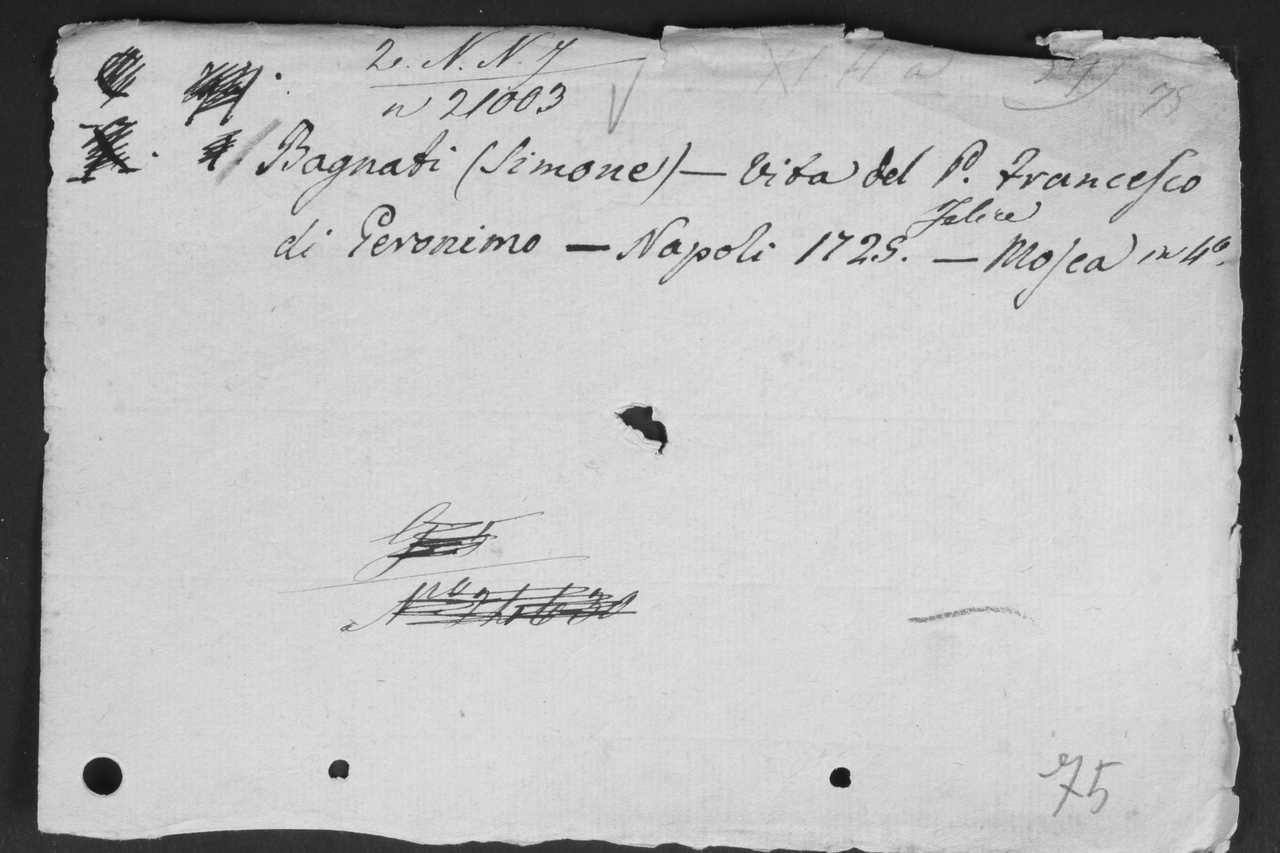 2. N. N. 7
n 21003
75
Bagnati (Simone) — Vita del P. Francesco
di Geronimo — Napoli 1725. — Felice Mosca in 4º.
75